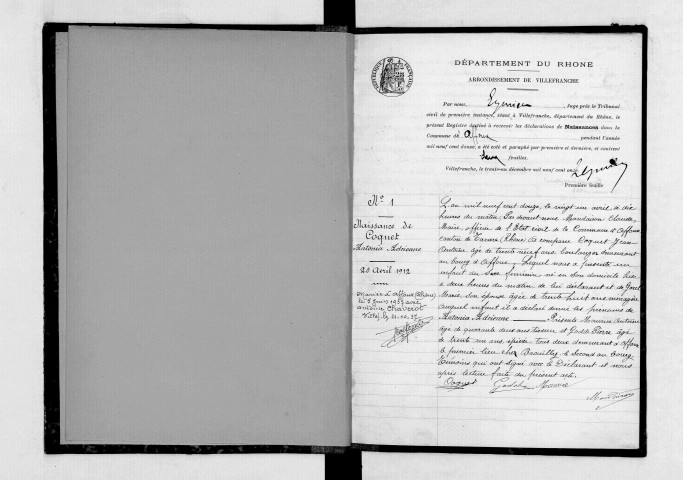 DÉPARTEMENT DU RHONE
ARRONDISSEMENT DE VILLEFRANCHE
RÉPUBLIQUE FRANÇAISE
Par nous, Eymin Juge près le Tribunal
civil de première instance, séant à Villefranche, département du Rhône, le
présent Registre destiné à recevoir les déclarations de Naissances dans la
Commune de Affoux pendant l'année
mil neuf cent douze, a été coté et paraphé par première et dernière, et contient
feuilles.
Villefranche, le trente-un décembre mil neuf cent onze
Première feuille
No 1
Naissance de
Coquet
Antonia Adrienne
20 Avril 1912
Mariée à Affoux (Rhône)
le 5 Juin 1937 avec
Antoine Chaverot
L'an mil neuf cent douze, le vingt un avril, à dix
heures du matin, Par devant nous Claude
Maire officier de l'Etat civil de la Commune d'Affoux
canton de Tarare (Rhône) a comparu Coquet Jean
âgé de trente neuf ans, boulanger demeurant
au bourg d'Affoux, Lequel nous a présenté un
enfant du Sexe féminin né en son domicile hier
à deux heures du matin de lui déclarant et de
Marie Son épouse âgée de trente huit ans ménagère
auquel enfant il a déclaré donner les prénoms de
Antonia Adrienne Présents
âgé de quarante deux ans tisseur et Pierre âgé
de trente un ans, tous deux demeurant à Affoux
le premier lieu chez le Second au bourg
Témoins qui ont signé avec le Déclarant et nous
après lecture faite du présent acte.
Coquet